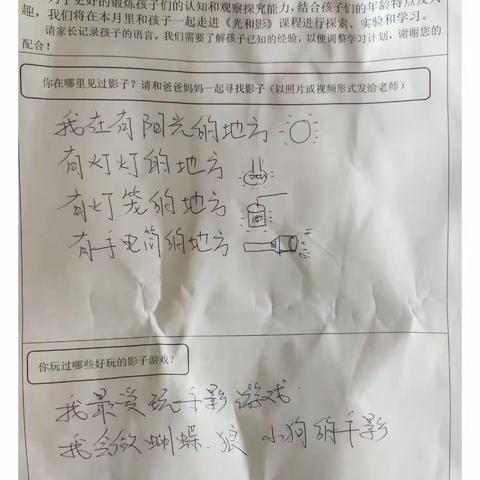 为了更好的锻炼孩子们的认知和观察探究能力,结合孩子们的年龄特点及兴
趣，我们将在本月里和孩子一起走进《光和影》课程进行探索、实验和学习。
请家长记录孩子的语言，我们需要了解孩子已知的经验，以便调整学习计划，谢谢您的
配合！
你在哪里见过影子？请和爸爸妈妈一起寻找影子（以照片或视频形式发给老师）
我在有阳光的地方
有灯灯的地方
有灯笼的地方
有手电筒的地方
你玩过哪些好玩的影子游戏？
我最爱玩手影游戏.
我会做蝴蝶、狼、小狗的手影